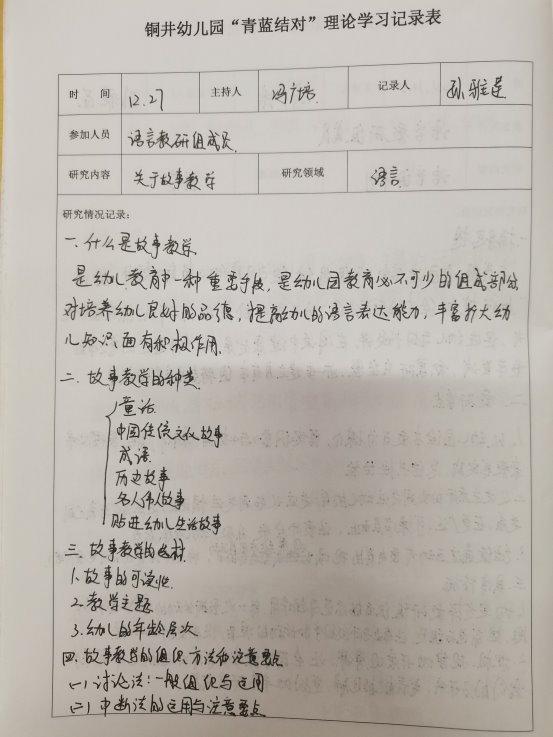 铜井幼儿园“青蓝结对”理论学习记录表
时 间 12.27 主持人 冯广培 记录人 孙雅莲
参加人员 语言教研组成员
研究内容 关于故事教学 研究领域 语言
研究情况记录：
一.什么是故事教学
是幼儿教育中一种重要手段，是幼儿园教育必不可少的组成部分
对培养幼儿良好的品德，提高幼儿的语言表达能力，丰富扩大幼
儿知识面有积极作用.
二.故事教学的种类
童话
中国传统文化故事
成语
历史故事
名人伟人故事
贴进幼儿生活故事
三.故事教学的选材
1.故事的可读性
2.教学主题
3.幼儿的年龄层次
四.故事教学的组织方法和注意要点
(一)讨论法:一般组织与运用
(二)中断法的运用与注意要点